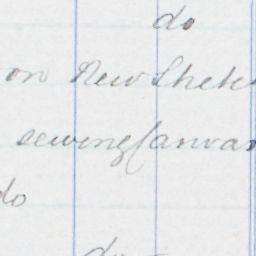 do
on New Shets
sewing Canvas
do
do